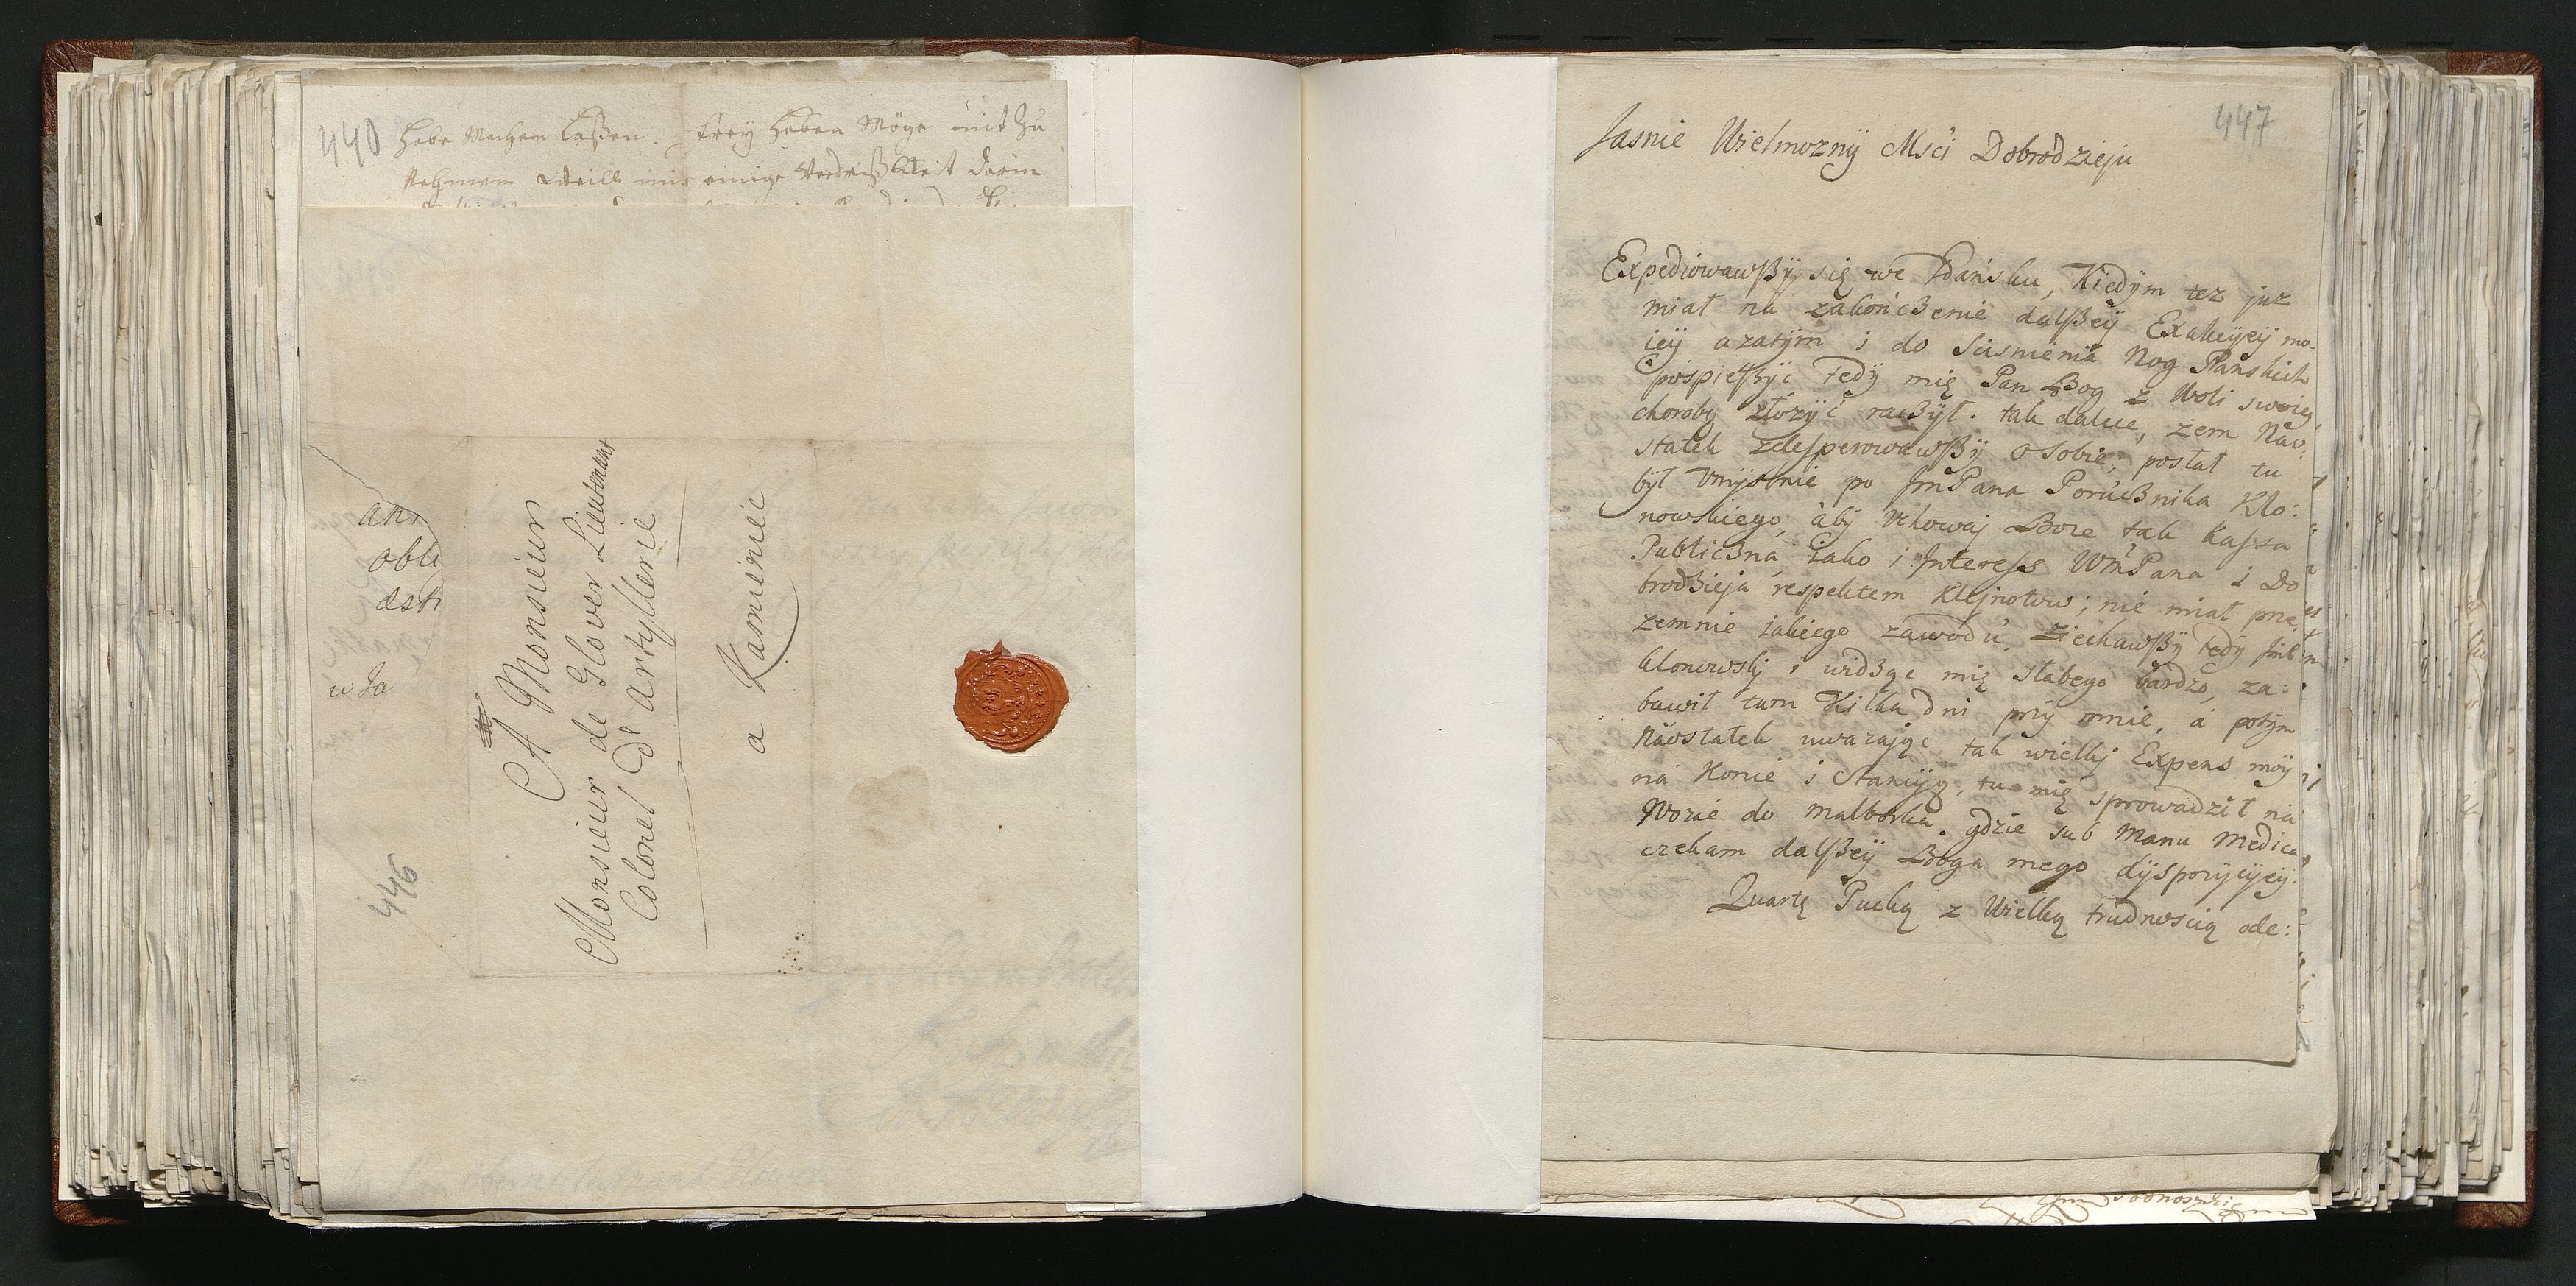 440
habe Machen laßen. frey haben Möge mit zu
nehmen Weill mir einige Verdrißlichkeit darin
obli
w Ja
446
A Monsieur
Monsieur de Glover Lieutenant
Colonel d'artyllerie
a Kamieniec
447
Jasnie Wielmoznÿ Msci Dobrodzieju
Expediowawßÿ się we Gdańsku, Kiedÿm tez juz
miał na zakończenie dalßeÿ Exakcÿeÿ mo-
ieÿ a zatÿm i do scisnienia Nog Panskich
pospießÿc tedÿ mię Pan Bog z Woli swoieÿ
chorobą złozÿc raczÿł. tak dalece, zem Nao-
statek zdesperowawßÿ o sobie; posłał tu
bÿł Umÿslnie po JmPana Porucznika Kło:
nowskiego, abÿ Uchowaj Boze tak kassa
Publiczna iako i Interess WmPana i Do
brodzieja respektem Klejnotow; nie miał prze
zemnie iakiego zawodu. Ziechawßÿ tedÿ JmP
klonowskj i widząc mię słabego bardzo, za:
bawił tam Kilka dni przÿ mnie, a potÿm
Naostatek uwazając tak wielkj Expens moÿ
na Konie i Stancÿą, tu mię sprowadził na
Wozie do Malborka. gdzie sub manu Medica
czekam dalßeÿ Boga mego dÿspozÿcÿeÿ.
Quartę Pucką z Wielką trudnoscią ode: